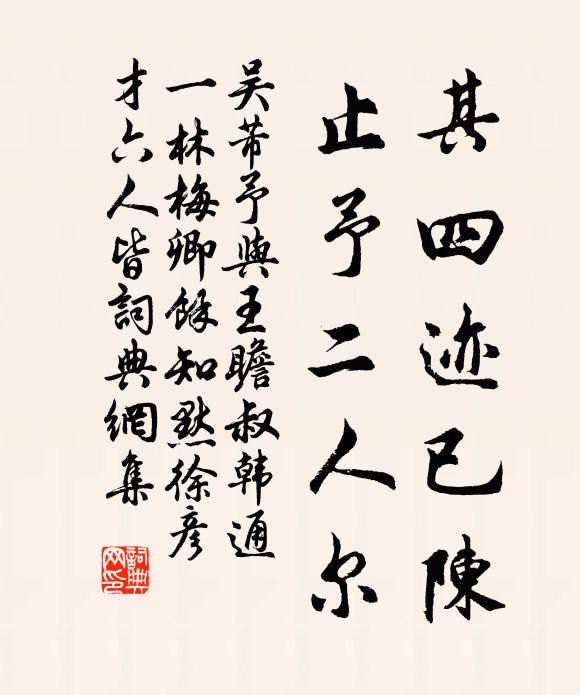 其四迹已陳
止予二人尔
吴芾予與王瞻叔韩通
一林梅卿餘知默徐彦
才六人皆詞典網集
詞典网印